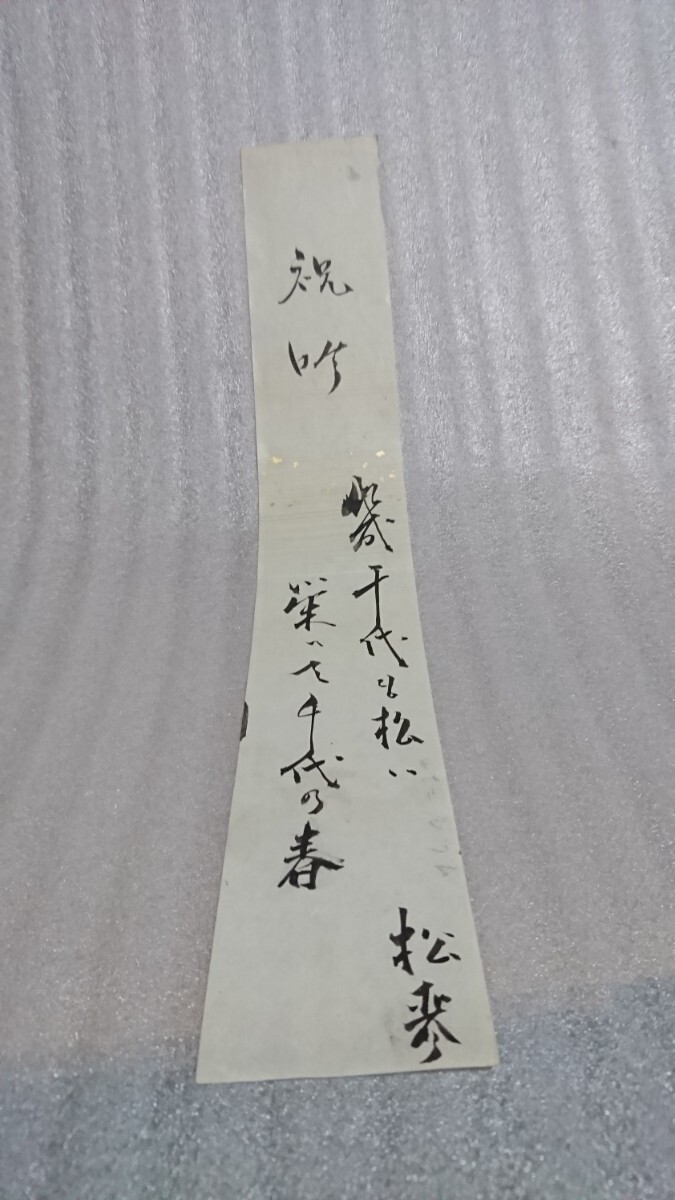 祝吟
幾千代も松ハ
栄へて千代の春
松琴